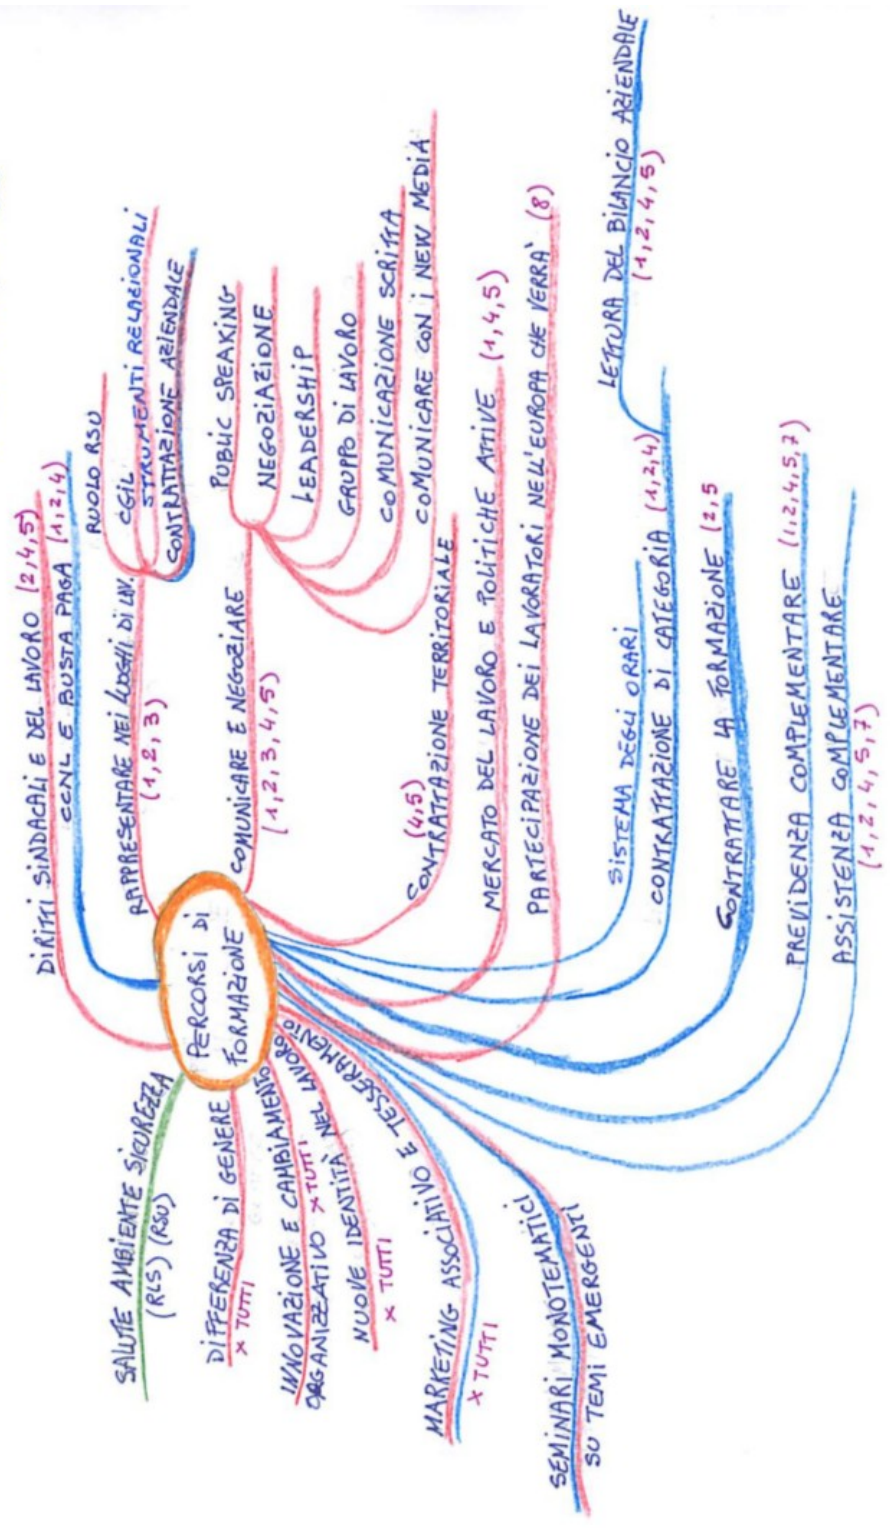 PERCORSI DI
FORMAZIONE
DIRITTI SINDACALI E DEL LAVORO (2,4,5)
CCNL E BUSTA PAGA (1,2,4)
RAPPRESENTARE NEI LUOGHI DI LAV.
(1,2,3)
RUOLO RSU
CGIL
STRUMENTI RELAZIONALI
CONTRATTAZIONE AZIENDALE
COMUNICARE E NEGOZIARE
(1,2,3,4,5)
PUBLIC SPEAKING
NEGOZIAZIONE
LEADERSHIP
GRUPPO DI LAVORO
COMUNICAZIONE SCRITTA
COMUNICARE CON I NEW MEDIA
(4,5)
CONTRATTAZIONE TERRITORIALE
MERCATO DEL LAVORO E POLITICHE ATTIVE (1,4,5)
PARTECIPAZIONE DEI LAVORATORI NELL'EUROPA CHE VERRA' (8)
SISTEMA DEGLI ORARI
CONTRATTAZIONE DI CATEGORIA (1,2,4)
LETTURA DEL BILANCIO AZIENDALE
(1,2,4,5)
CONTRATTARE LA FORMAZIONE (2,5
PREVIDENZA COMPLEMENTARE (1,2,4,5,7)
ASSISTENZA COMPLEMENTARE
(1,2,4,5,7)
SALUTE AMBIENTE SICUREZZA
(RLS) (RSU)
DIFFERENZA DI GENERE
x TUTTI
INNOVAZIONE E CAMBIAMENTO
ORGANIZZATIVO x TUTTI
NUOVE IDENTITÀ NEL LAVORO
x TUTTI
MARKETING ASSOCIATIVO E TESSERAMENTO
x TUTTI
SEMINARI MONOTEMATICI
SU TEMI EMERGENTI